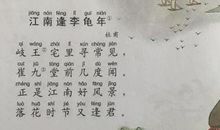 jiāng nán féng lǐ guī nián
江南逢李龟年①
杜甫
qí wáng zhái lǐ xún cháng jiàn
岐王宅里寻常见，
cuī jiǔ táng qián jǐ dù wén
崔九堂前几度闻。
zhèng shì jiāng nán hǎo fēng jǐng
正是江南好风景，
luò huā shí jié yòu féng jūn
落花时节又逢君。